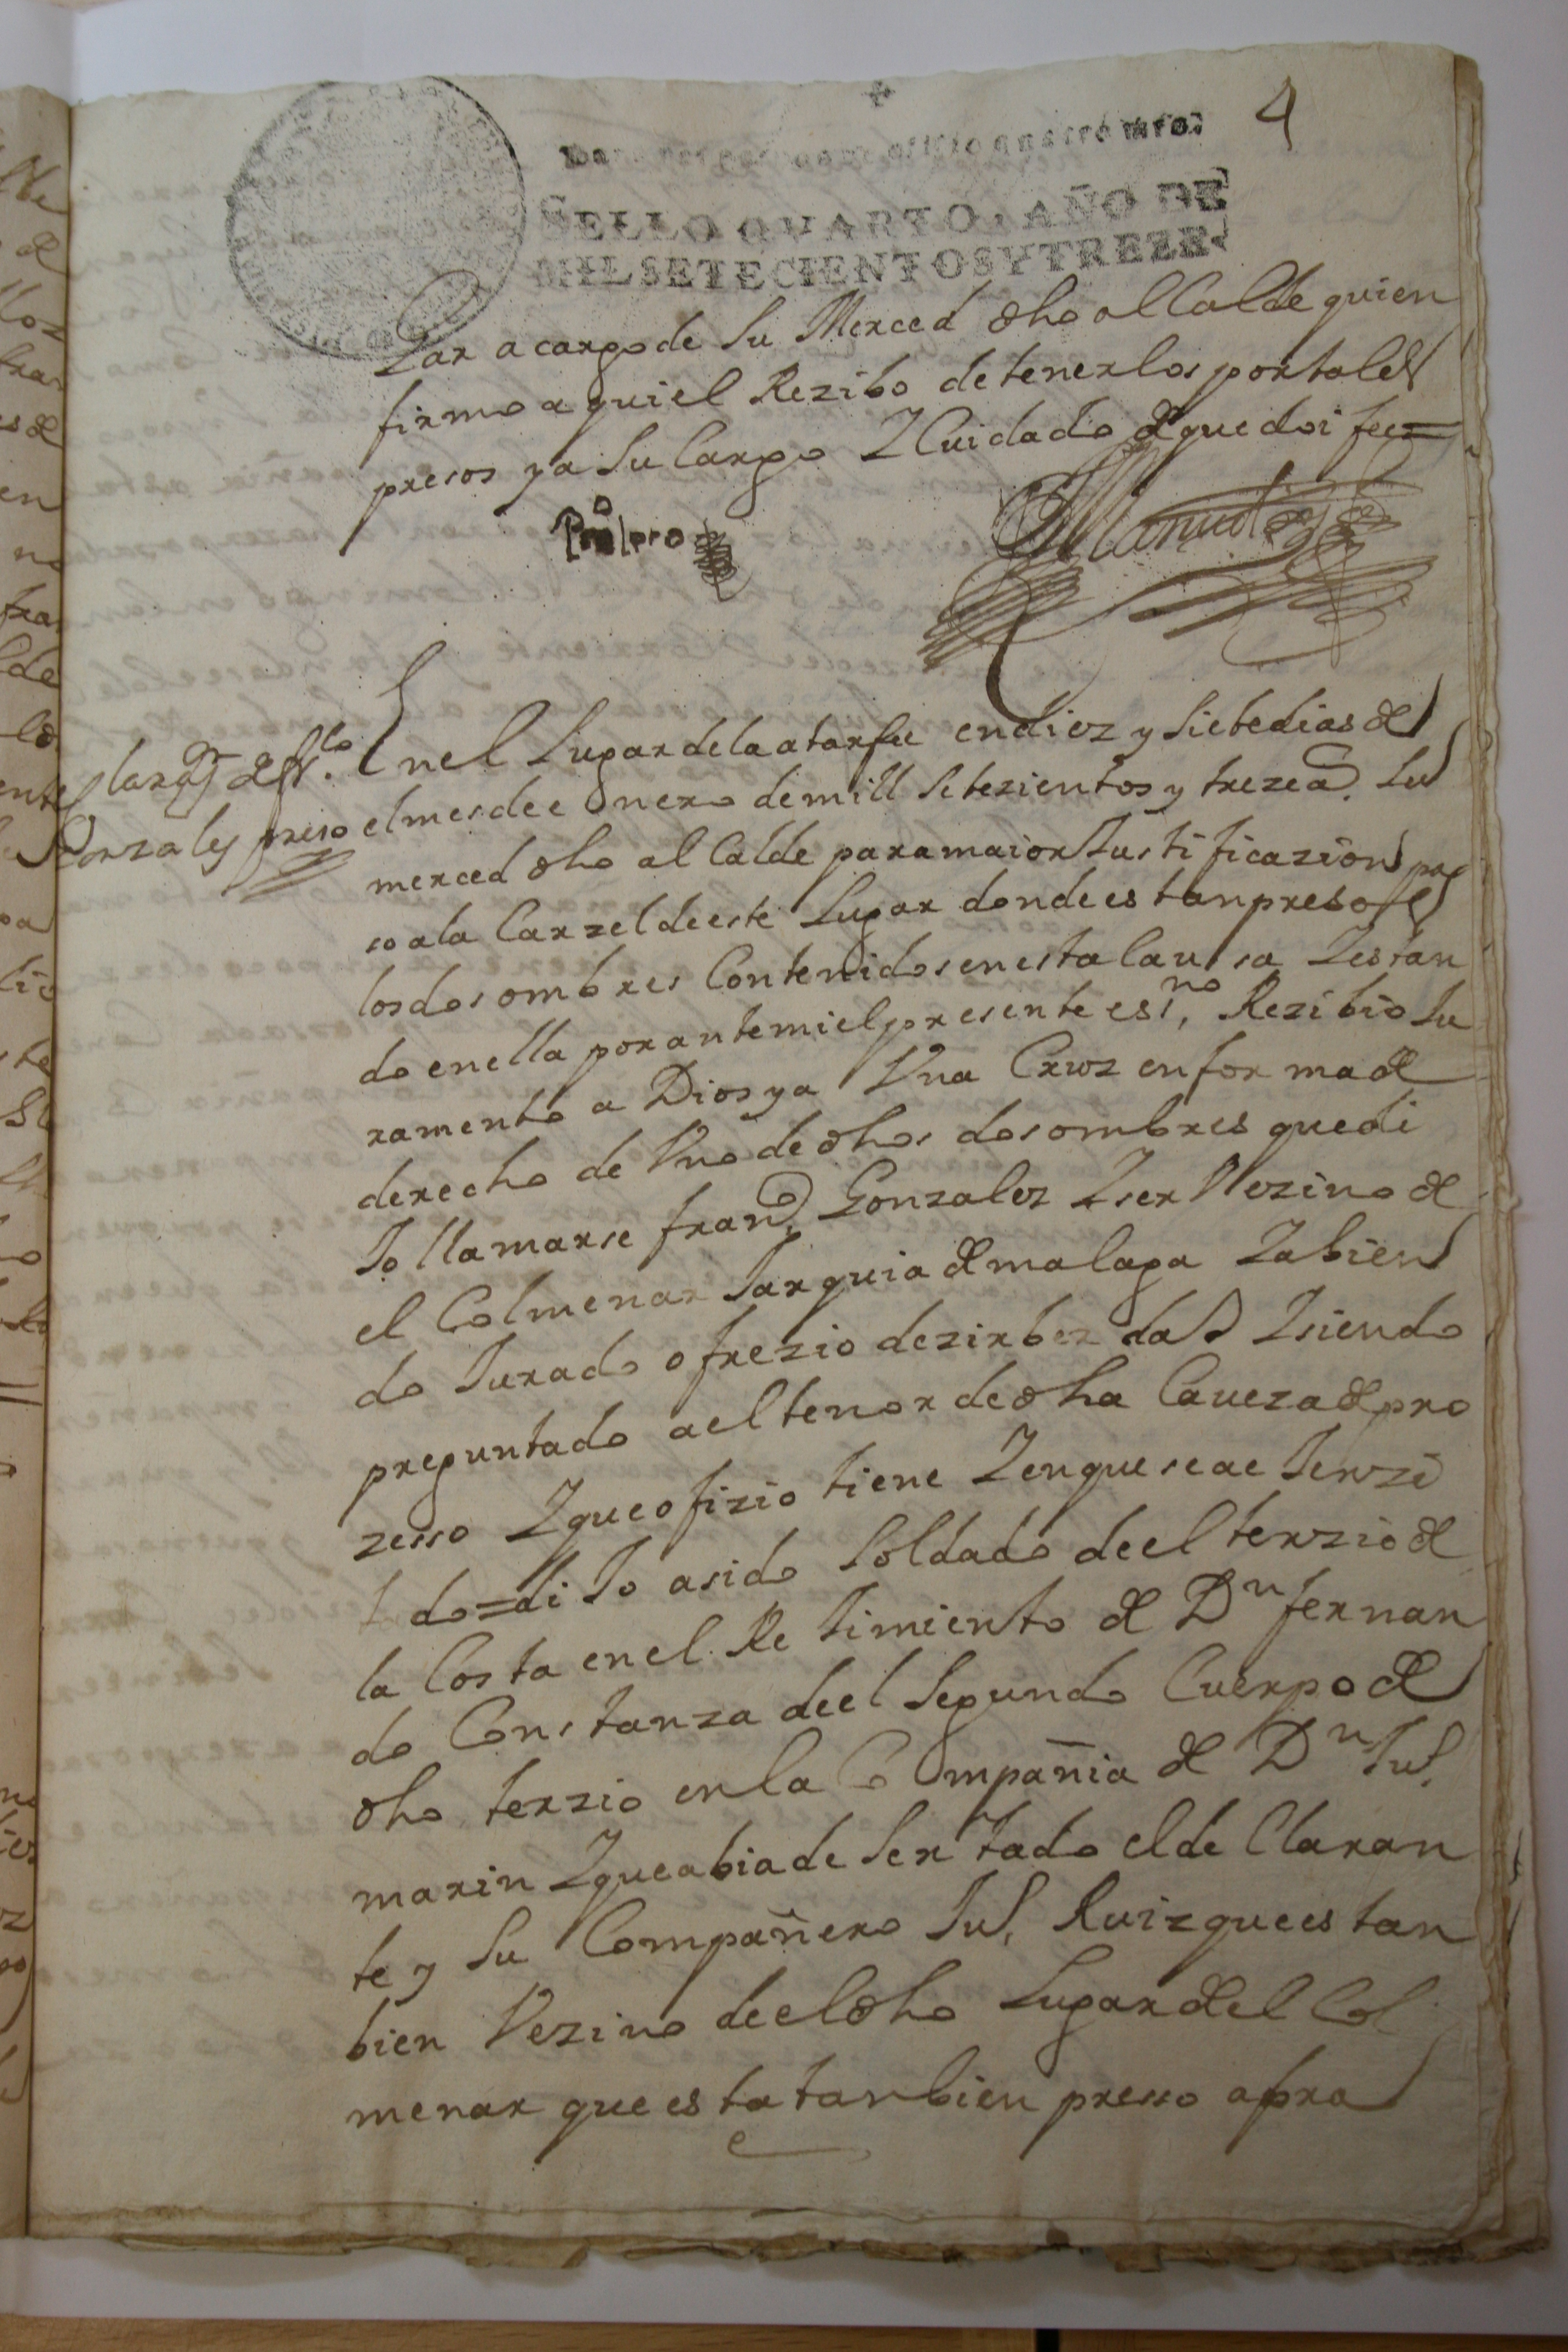 4
SELLO QVARTO, AÑO DE
MIL SETECIENTOS Y TREZE
a cargo de Su Merced dho al Calde quien
firmo aqui el Rezibo de tenerlos por tales
presos y a Su Cargo Y Cuidado de que doi fee=
En el Lugar de la atarfe en diez y Siete dias de
Gonzales preso
el mes de enero de mill Setezientos y treze a.s Su
merced dho al Calde para maior Justificazion pa
so a la Carzel de este Lugar donde estan presos
los dos ombres Contenidos en esta Causa Y estan
do en ella por ante mi el presente ess.no Rezibio Ju
ramento a Dios y a Vna Cruz en forma de
derecho de Vno de dhos dos ombres que di
Jo llamarse fran.co Gonzalez Y ser Vezino de
el Colmenar Jarquia de malaga Y abien
do Jurado ofrezio dezir berdad Y siendo
preguntado a el tenor de dha Caveza de pro
zesso Y que ofizio tiene Y en que se ae Jerzi
tado=di Jo a sido Soldado de el terzio de
la Costa en el Re Jimiento de Dn fernan
do Constanza de el Segundo Cuerpo de
dho terzio en la Compañia de Dn Ju.
marin Y que abia de Ser Jado el de Claran
te y Su Compañero Ju. Ruiz que es tan
bien Vezino de el dho Lugar de el Col
menar que esta tanbien presso a